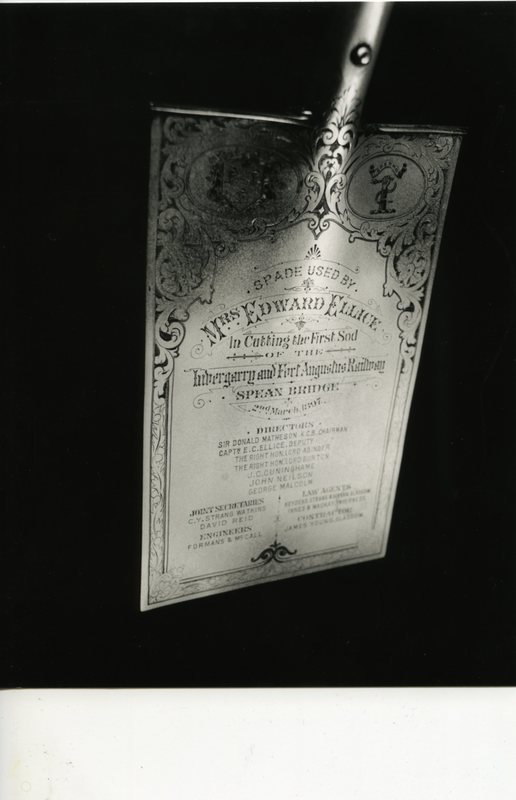 SPADE USED BY
MRS EDWARD ELLICE
In Cutting the First Sod
OF THE
Invergarry and Fort Augustus Railway
SPEAN BRIDGE
2nd March, 1897.
DIRECTORS
SIR DONALD MATHESON, K.C.B. CHAIRMAN
CAPTN E.C. ELLICE, DEPUTY
THE RIGHT HON. LORD ABINGER
THE RIGHT HON. LORD BURTON
J.C. CUNINGHAME
JOHN NEILSON
GEORGE MALCOLM
JOINT SECRETARIES
C.Y. STRANG WATKINS
DAVID REID
ENGINEERS
FORMANS & McCALL
LAW AGENTS
INNES & MACKAY, INVERNESS
CONTRACTOR
JAMES YOUNG, GLASGOW